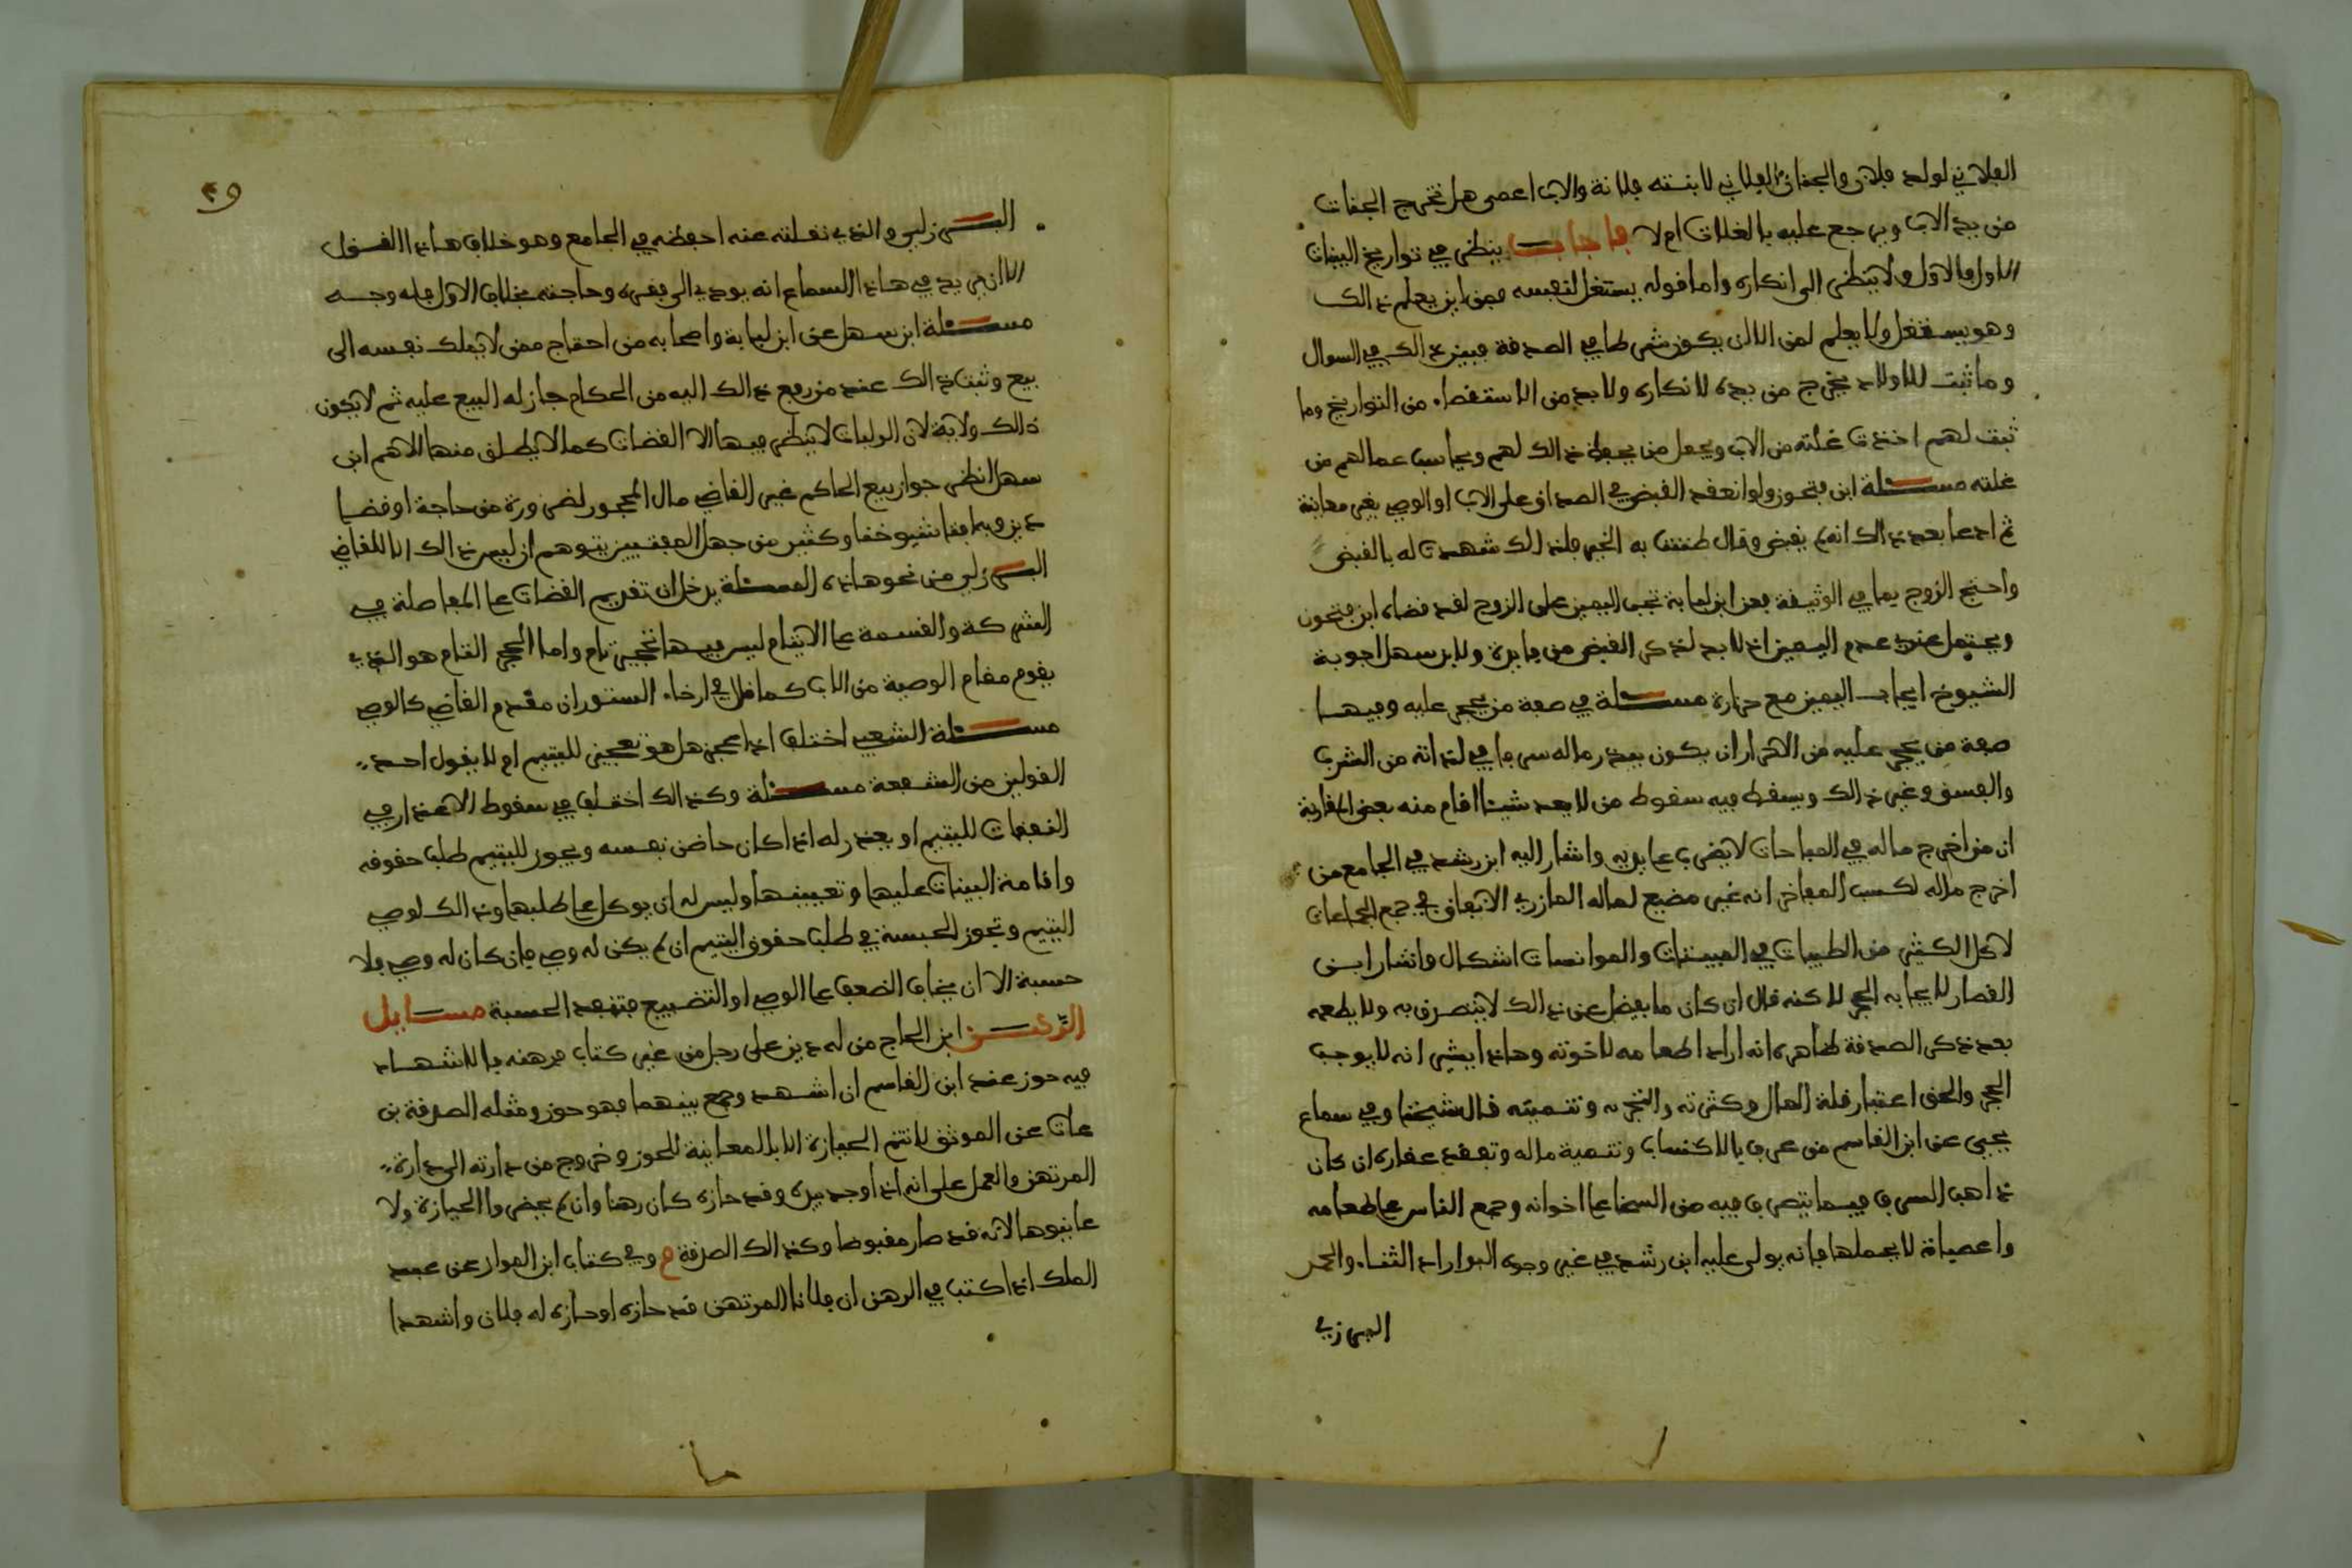 الفلاني لولد فلان والجفان الفلاني لابنته فلانة والاب اعصى هل تخرج الجفات
من يد الاب ويرجع عليه بالغلات ام لا فاجاب ينظر في تواريخ البينات
الاول فالاول ولا ينظر الى انكاره واما قوله يستغل لنفسه فمن اين يعلم ذالك
وهو يستغفل ولا يعلم لمن الا ان يكون شرطا في الصدقة فيبين ذالك في السوال
وما ثبت للاولاد يخرج من يده لانكاره ولا بد من الاستقصاء من التواريخ وما
ثبت لهم اخذت غلته من الاب ويجعل من يحفظ ذالك لهم ويحاسب عما لهم من
غلته مسئلة ابن فتحون ولو انعقد القبض في الصداق على الاب او الوصي بغير معاينة
ثم ادعا بعد ذالك انه لم يقبض وقال ظننت به الخير فلذالك شهدت له بالقبض
واحتج الزوج بما في الوثيقة فعن ابن لبابة تجب اليمين على الزوج لقد قضاه ابن فتحون
ويحتمل عندي عدم اليمين اذ لا بد لذكر القبض من فايدة ولابن سهل اجوبة
الشيوخ ايجاب اليمين مع مسئلة في صفة من يحجر عليه وفيها
صفة من يحجر عليه من الاحرار ان يكون يبذر ماله سرفا في لذاته من الشرب
والفسق وغير ذالك ويسقط فيه سقوط من لا يعد شيئا اقام منه بعض المغاربة
ان من اخرج ماله في المباحات لا يضرب على يديه واشار اليه ابن رشد في الجامع من
اخرج ماله لكسب المفاخر انه غير مضيع لماله المازري الانفاق في جمع الجماعات
لاكل الكثير من الطيبات في المبيتات والموانسات اشكال واشار ابن
القصار لايجابه الحجر لاكنه قال ان كان ما يفضل عن ذالك لا يتصدق به ولا يطعمه
بعد ذكر الصدقة ظاهره انه اراد اطعامه لاخوته وهاذا يشير انه لا يوجب
الحجر والحق اعتبار قلة المال وكثرته والتجر به وتنميته قال شيخنا وفي سماع
يحيى عن ابن القاسم من عرف بالاكتساب وتنمية ماله وتفقد عقاره ان كان
ذاهب السرف فيما يتصرف فيه من السخا على اخوانه وجمع الناس على طعامه
واعطياة لا يحملها فانه يولى عليه ابن رشد في غير وجوه البر اراد الثناء والحمد
البرزلي
٤٩
البرزلي والذي نقلته عنه احفظه في الجامع وهو خلاف هاذا القول
الا ان يريد في هاذا السماع انه يودي الى فقره وحاجته بخلاف الاول فله وجه
مسئلة ابن سهل عن ابن لبابة واصحابه من احتاج ممن لا يملك نفسه الى
بيع وثبت ذالك عند من رفع ذالك اليه من الحكام جاز له البيع عليه ثم لا يكون
ذالك ولاية لان الوليات لا ينظر فيها الا القضات كما لا يطلق منها الا هم ابن
سهل انظر جواز بيع الحاكم غير القاضي مال المحجور لضرورة من حاجة او قضا
دين وبه افتا شيوخنا وكثير من جهل المفتيين يتوهم ان ليس ذالك الا للقاضي
البرزلي من نحو هاذه المسئلة يدخل ان تقديم القضات على المفاصلة في
الشركة والقسمة على الايتام ليس فيها تحجير تام واما الحجر التام هو الذي
يقوم مقام الوصية من الاب كما قال في ارخاء الستور ان مقدم القاضي كالوصي
مسئلة الشعبي اختلف اذا عجز هل هو تعجيز لليتيم ام لا يقول احد
القولين من الشفعة مسئلة وكذالك اختلف في سقوط الاعذار في
النفقات لليتيم او يعذر له اذا كان حاضن نفسه ويجوز لليتيم طلب حقوقه
واقامة البينات عليها وتعيينها وليس له ان يوكل على طلبها وذالك لوصي
اليتيم وتجوز الحسبة في طلب حقوق اليتيم ان لم يكن له وصي فان كان له وصي فلا
حسبة الا ان يخاف الضعف على الوصي او التضييع فتنعقد الحسبة مسايل
الرهن ابن الحاج من له دين على رجل من غير كتاب فرهنه بالاشهاد
فيه حوز عند ابن القاسم ان اشهد وجمع بينهما فهو حوز ومثله الصدقة بن
عات عن الموثق لا تتم الحيازة الا بالمعاينة للحوز وخروج من دارته الى دارة
المرتهن والعمل على انه اذا وجد بيده وقد حازه كان رهنا وان لم يحضروا الحيازة ولا
عاينوها لانه قد صار مقبوضا وكذالك الصدقة م وفي كتاب ابن المواز عن عبد
الملك اذا كتب في الرهن ان فلانا المرتهن قد حازه او حازه له فلان واشهدا